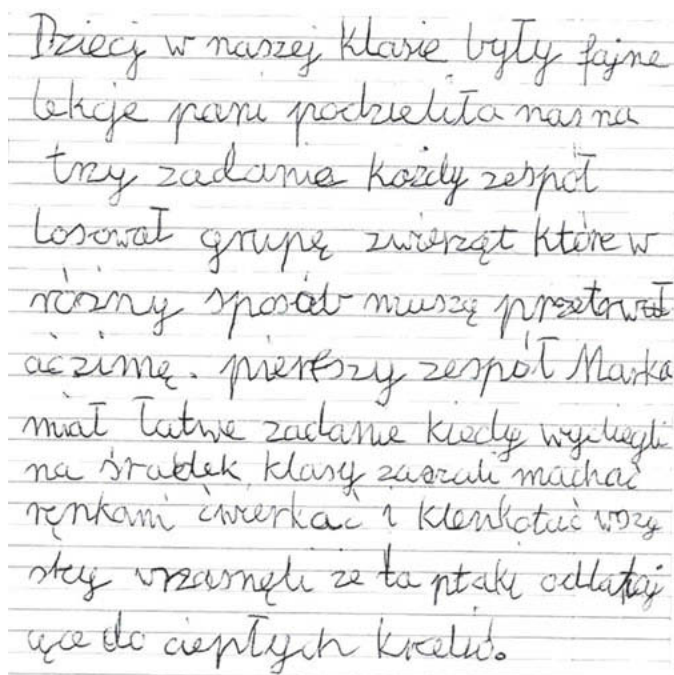 Dzieci w naszej klasie były fajne
lekcje pani podzieliła nas na
trzy zadania każdy zespół
losował grupę zwierząt które w
różny sposób muszę przetrwał
ać zimę. pierszy zespół Marka
miał łatwe zadanie kiedy wybiegli
na środek klasy zaczali machać
ręnkami ćwierkać i klenkotać wszy
stcy wrzasnęli że to ptaki odlatuj
ące do ciepłych kraluw.